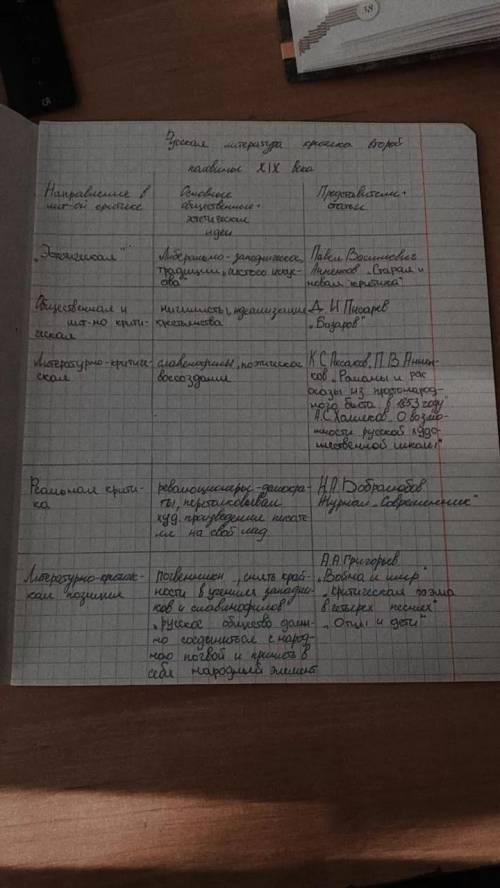 Русская литература критика второй
половины XIX века
Направление в
лит-ой критике
Основные
общественные+
эстетические
идеи
Представители+
статьи
„Эстетическая"
Либерально-западническое,
традиции „чистого искус-
ства"
Павел Васильевич
Анненков „Старая и
новая критика"
Общественная и
лит-но крити-
ческая
нигилисты, идеализация
крестьянства
Д. И Писарев
„Базаров"
Литературно-критиче-
ская
славянофилы, поэтическое
воссоздание
К.С. Аксаков, П. В. Аннен-
ков „Романы и рас
сказы из простонарод-
ного быта в 1853 году"
А.С. Хомяков „О возмо-
жности русской худо-
жественной школы"
Реальная крити-
ка
революционеры-демокра-
ты, перетолковывали
худ. произведения писате
ля на свой лад
Н.А. Добролюбов
Журнал „Современник"
Литературно-критичес-
кая позиция
почвенники, снять край-
ности в учениях западни-
ков и славянофилов
„русское общество долж-
но соединиться с народ-
ною почвой и принять в
себя народный элемент
А.А. Григорьев
„Война и мир"
„критическая поэма
в четырех песнях"
„Отцы и дети"
18